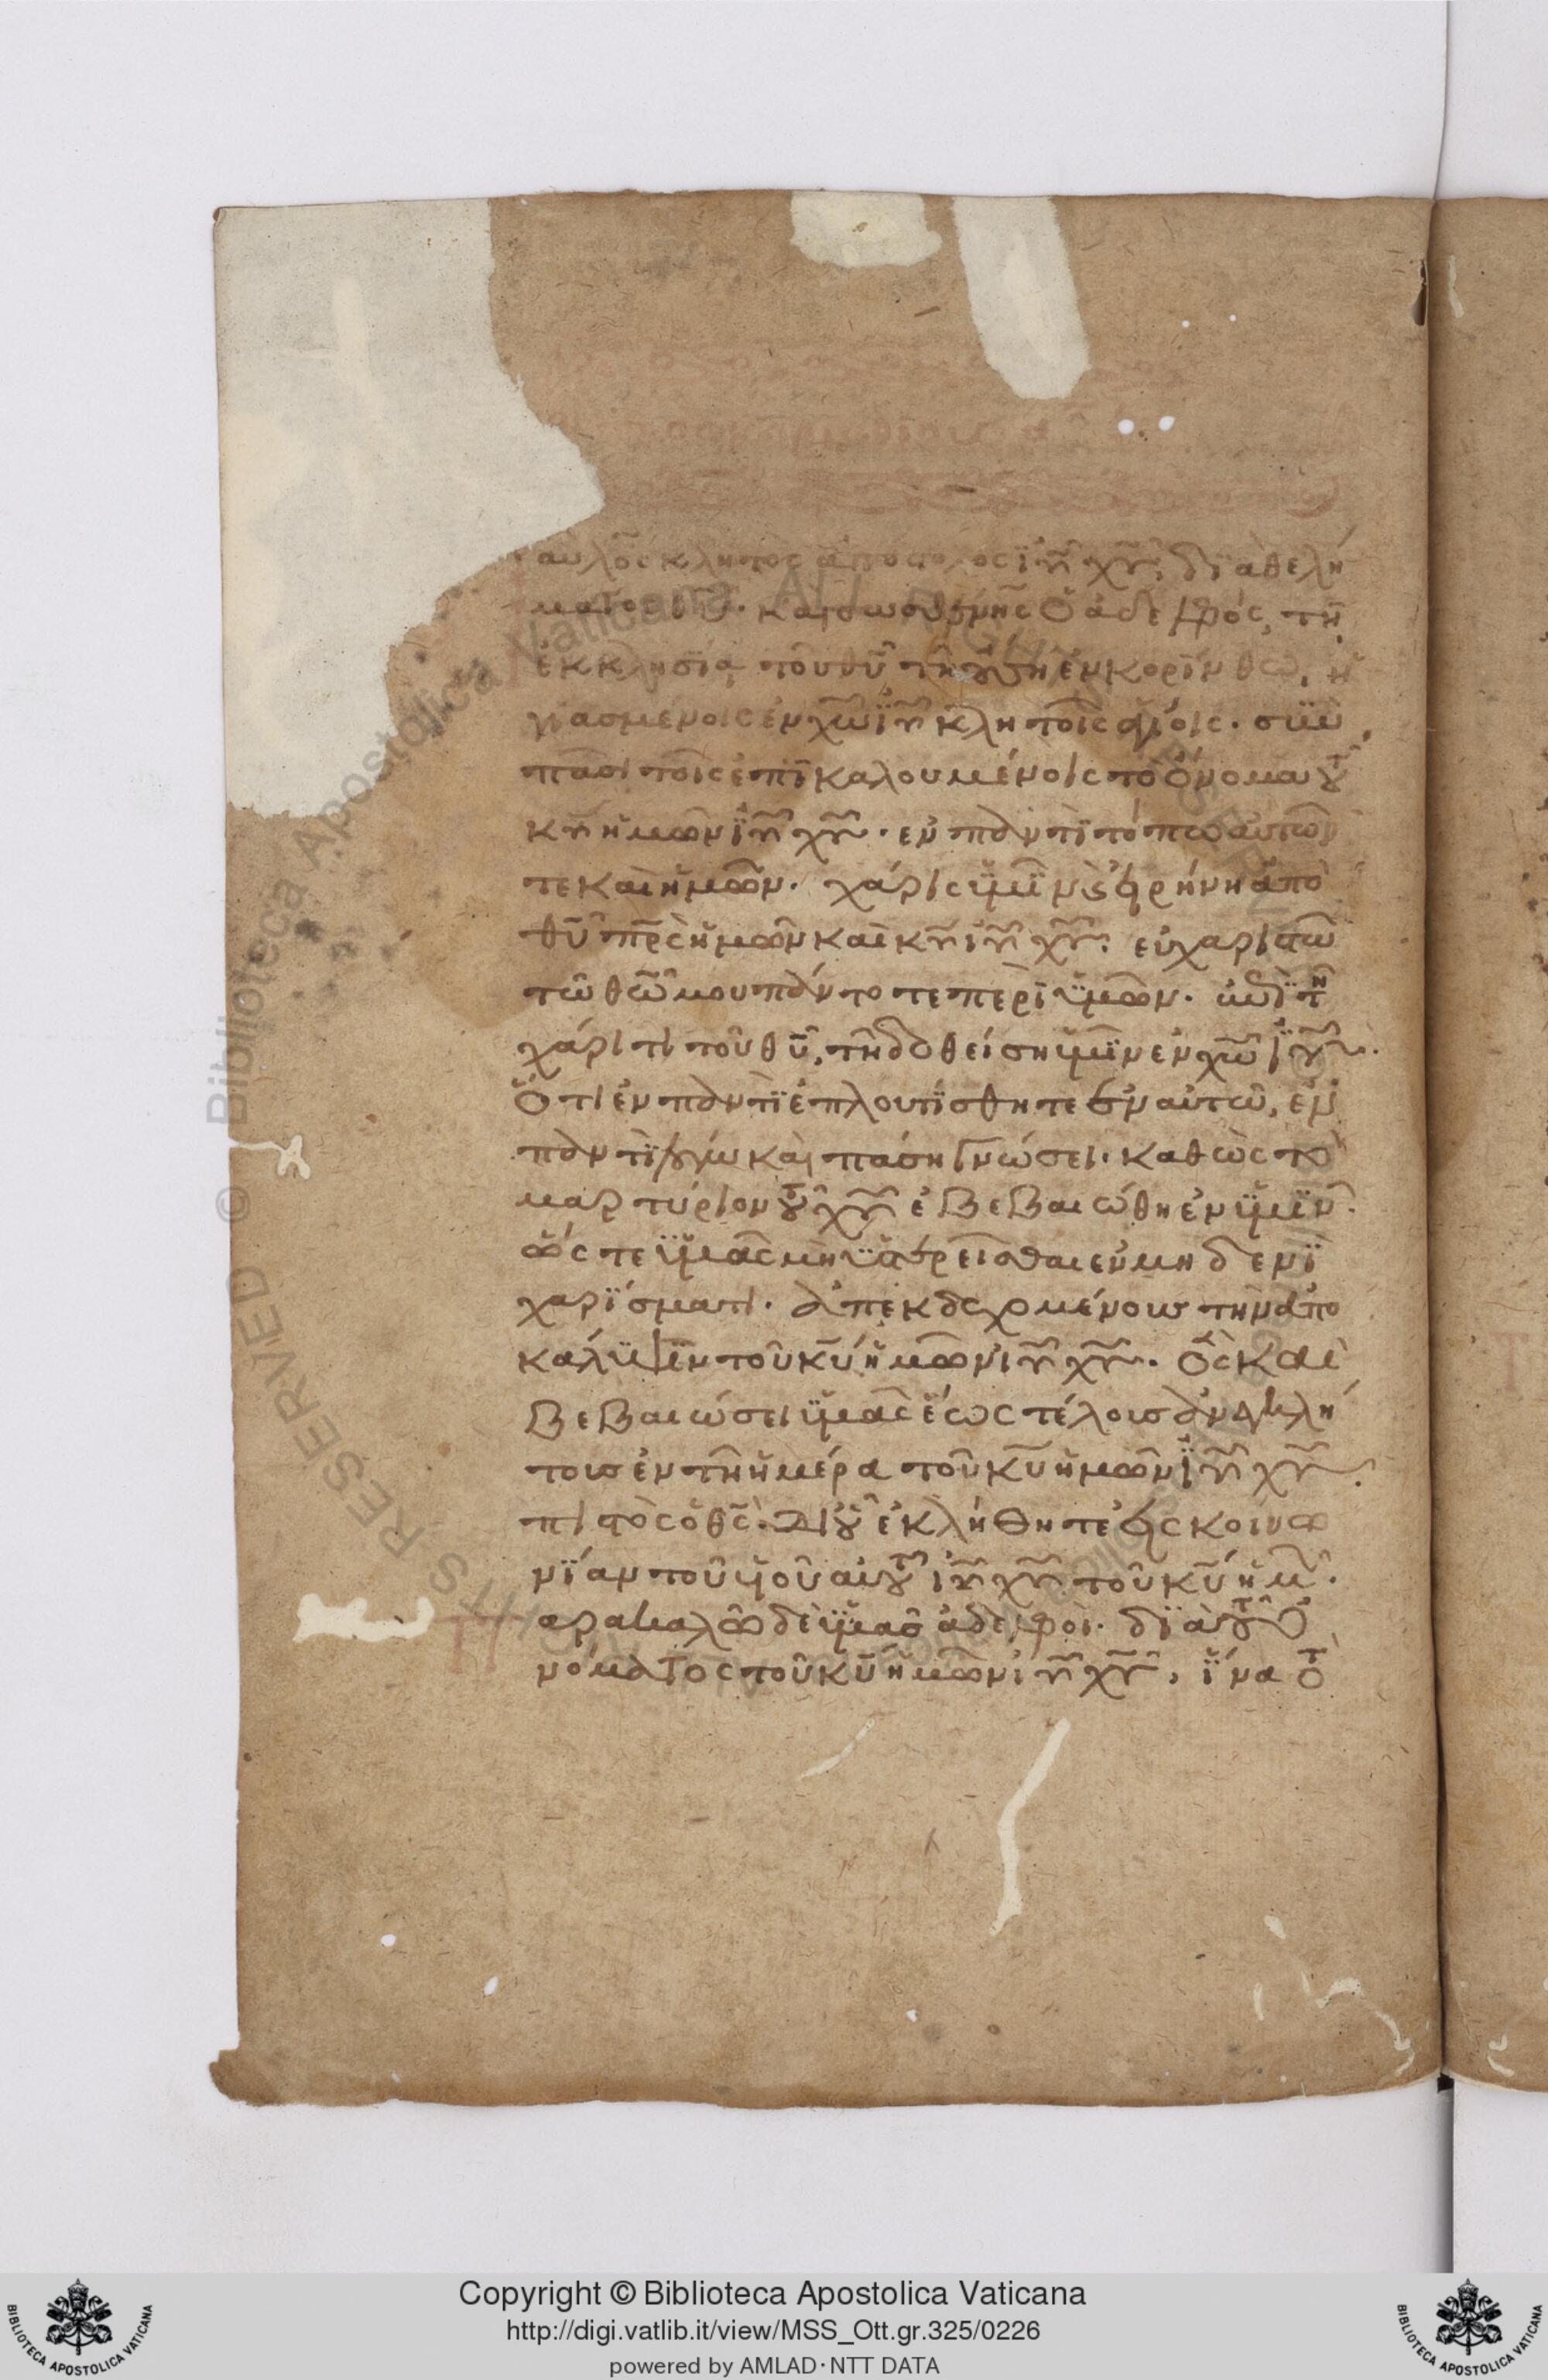 αυλος κλητὸς ἀπόστολος ἰῦ χῦ, δϊὰ θελή
ματος θῦ. καὶ σωσθένης ὁ ἀδελφός, τῆ
ἐκκλησϊᾳ τοῦ θῦ τῆ οὔση ἐν κορίνθω, ἡ
γιασμένοις ἐν χῶ ἰῦ κλητοῖς ἁγίοις. σὺν
πᾶσι τοῖς ἐπϊκαλουμένοις τὸ ὄνομα τοῦ
κῦ ἡμῶν ἰῦ χῦ. ἐν παντὶ τόπω αὐτῶν
τε καὶ ἡμῶν. χάρις ὑμῖν καὶ εἰρήνη ἀπὸ
θῦ πρς ἡμῶν καὶ κῦ ἰῦ χῦ. εὐχαριστῶ
τῶ θῶ μου πάντοτε περὶ ὑμῶν. ἐπὶ τῆ
χάριτι τοῦ θῦ, τῆ δοθείση ὑμῖν ἐν χῶ ἰῦ.
Ὅτι ἐν παντὶ ἐπλουτϊσθητε ἐν αὐτῶ, ἐν
παντὶ λόγω καὶ πάση γνώσει. καθὼς τὸ
μαρτύριον τοῦ χῦ ἐβεβαιώθη ἐν ὑμῖν.
ὥστε ὑμᾶς μὴ ὑστερεῖσθαι ἐν μηδενϊ
χαρϊσματι. ἀπεκδεχομένους τὴν ἀπο
κάλυψϊν τοῦ κῦ ἡμῶν ἰῦ χῦ. ὃς καὶ
βεβαιώσει ὑμᾶς ἕως τέλους ἀνεγκλή
τους ἐν τῆ ἡμέρα τοῦ κῦ ἡμῶν ἰῦ χῦ.
πιστὸς ὁ θς. δι οὗ ἐκλήθητε εἰς κοινω
νϊαν τοῦ υἱοῦ αὐτοῦ ἰῦ χῦ τοῦ κῦ ἡμ.
Παρακαλῶ δὲ ὑμᾶς ἀδελφοὶ. δϊὰ τοῦ ὀ
νόματος τοῦ κῦ ἡμῶν ἰῦ χῦ, ἵνα τὸ
Copyright © Biblioteca Apostolica Vaticana
http://digi.vatlib.it/view/MSS_Ott.gr.325/0226
powered by AMLAD·NTT DATA
BIBLIOTECA APOSTOLICA VATICANA
BIBLIOTECA APOSTOLICA VATICANA